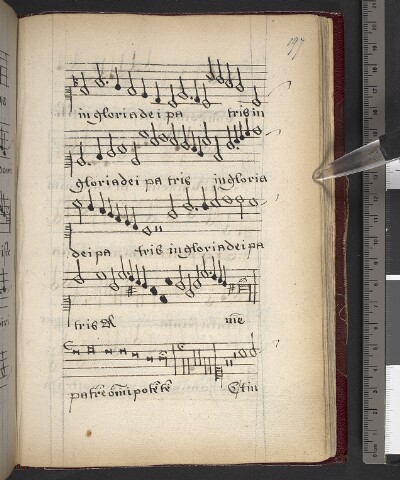 197
in gloria dei pa tris in
gloria dei pa tris in gloria
dei pa tris in gloria dei pa
tris A mē
patrē om̄ipotētē Et in